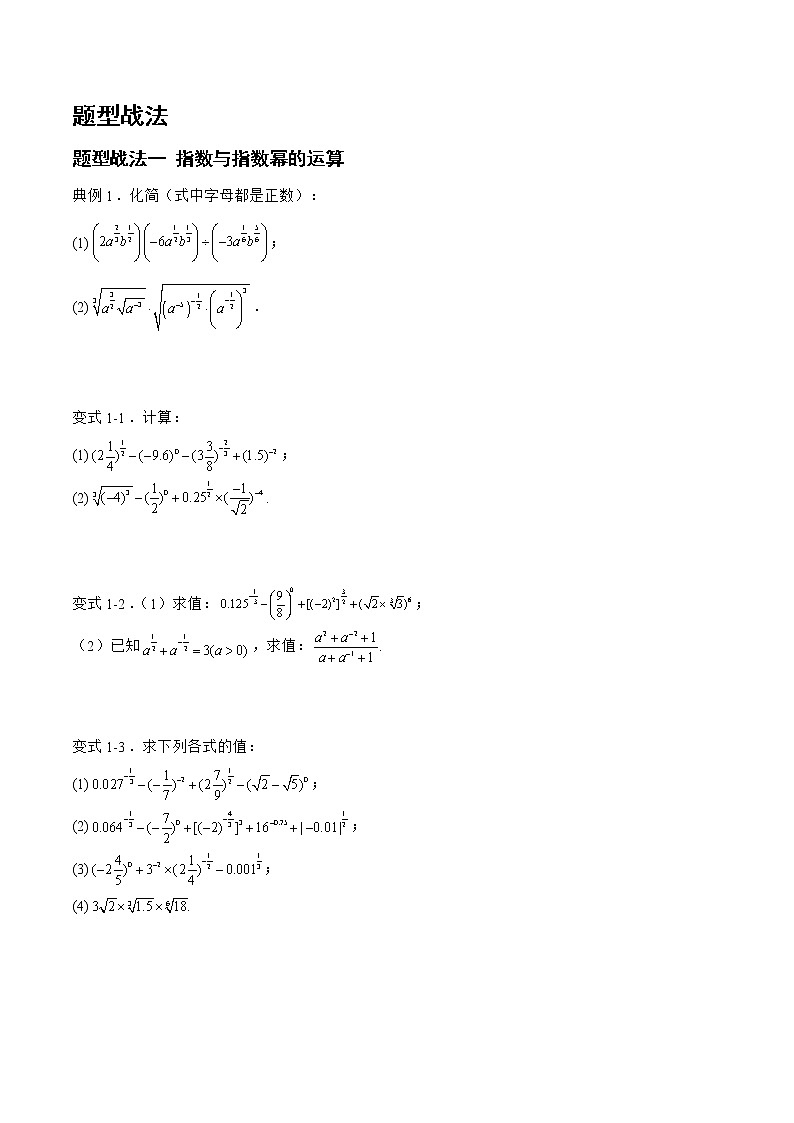 题型战法
题型战法一 指数与指数幂的运算
典例1．化简（式中字母都是正数）：
(1) $\left(2a^{\frac{2}{3}}b^{\frac{1}{2}}\right)\left(-6a^{\frac{1}{2}}b^{\frac{1}{3}}\right)\div\left(-3a^{\frac{1}{6}}b^{\frac{5}{6}}\right)$；
(2) $\sqrt[3]{a^{\frac{3}{2}}\sqrt{a^{-3}}}\cdot\sqrt{\left(a^{-5}\right)^{-\frac{1}{2}}\cdot\left(a^{-\frac{1}{2}}\right)^{3}}$．
变式1-1．计算：
(1) $(2\frac{1}{4})^{\frac{1}{2}}-(-9.6)^{0}-(3\frac{3}{8})^{-\frac{2}{3}}+(1.5)^{-2}$；
(2) $\sqrt[3]{(-4)^{3}}-(\frac{1}{2})^{0}+0.25^{\frac{1}{2}}\times(\frac{-1}{\sqrt{2}})^{-4}$.
变式1-2．（1）求值：$0.125^{-\frac{1}{3}}-\left(\frac{9}{8}\right)^{0}+[(-2)^{2}]^{\frac{3}{2}}+(\sqrt{2}\times\sqrt[3]{3})^{6}$；
（2）已知$a^{\frac{1}{2}}+a^{-\frac{1}{2}}=3(a>0)$，求值：$\frac{a^{2}+a^{-2}+1}{a+a^{-1}+1}$.
变式1-3．求下列各式的值：
(1) $0.027^{-\frac{1}{3}}-(-\frac{1}{7})^{-2}+(2\frac{7}{9})^{\frac{1}{2}}-(\sqrt{2}-\sqrt{5})^{0}$；
(2) $0.064^{-\frac{1}{3}}-(-\frac{7}{2})^{0}+[(-2)^{-\frac{4}{3}}]^{3}+16^{-0.75}+|-0.01|^{\frac{1}{2}}$；
(3) $(-2\frac{4}{5})^{0}+3^{-2}\times(2\frac{1}{4})^{-\frac{1}{2}}-0.001^{\frac{1}{3}}$；
(4) $3\sqrt{2}\times\sqrt[3]{1.5}\times\sqrt[6]{18}$.